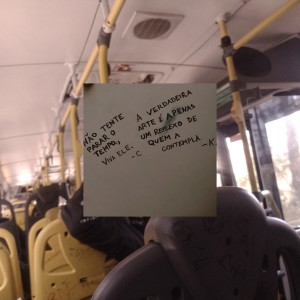 NÃO TENTE
PARAR O
TEMPO,
VIVA ELE.
-C
A VERDADEIRA
ARTE É APENAS
UM REFLEXO DE
QUEM A
CONTEMPLA